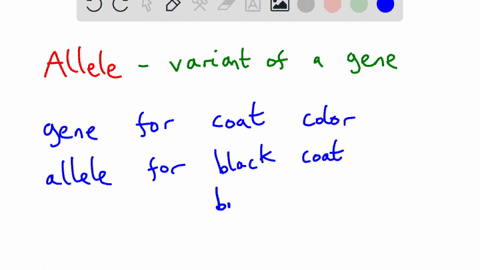 Allele - variant of a gene
gene for coat color
allele for black coat
br